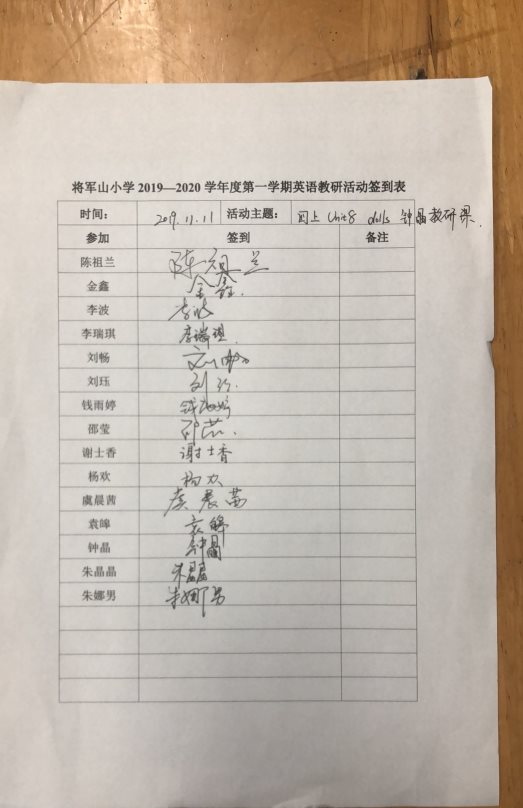 将军山小学 2019—2020 学年度第一学期英语教研活动签到表
时间： 2019.11.11 活动主题： 四上 Unit 8 dolls 钟晶教研课
参加 签到 备注
陈祖兰 陈祖兰
金鑫 金鑫
李波 李波
李瑞琪 李瑞琪
刘畅 刘畅
刘珏 刘珏
钱雨婷 钱雨婷
邵莹 邵莹
谢士香 谢士香
杨欢 杨欢
虞晨茜 虞晨茜
袁皞 袁皞
钟晶 钟晶
朱晶晶 朱晶晶
朱娜男 朱娜男